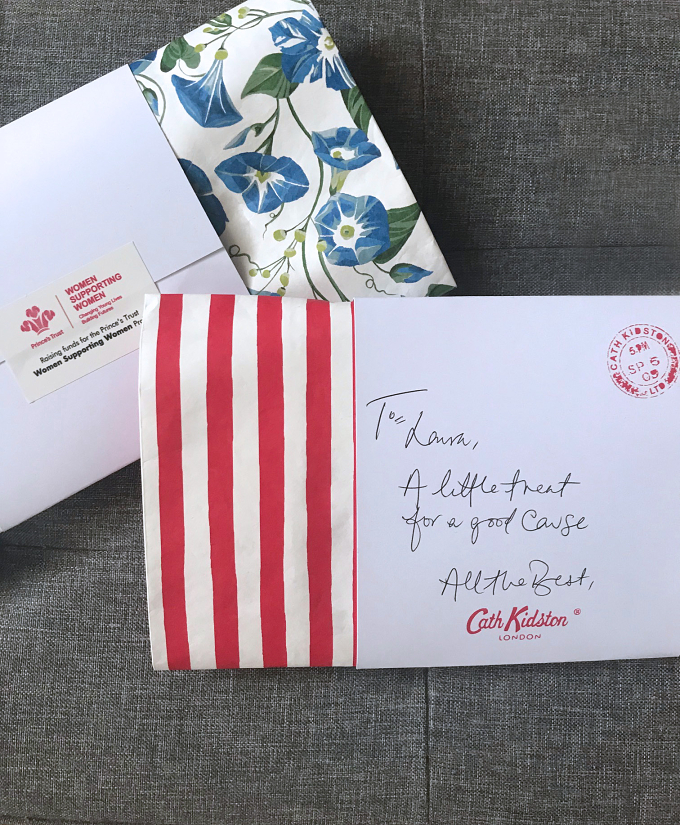 WOMEN
SUPPORTING
WOMEN
Changing Young Lives
Building Futures
Prince's Trust
Raising funds for the Prince's Trust
Women Supporting Women
CATH KIDSTON
5.PM
SP 5
LTD
To= Laura,
A little treat
for a good cause
All the Best,
Cath Kidston®
LONDON